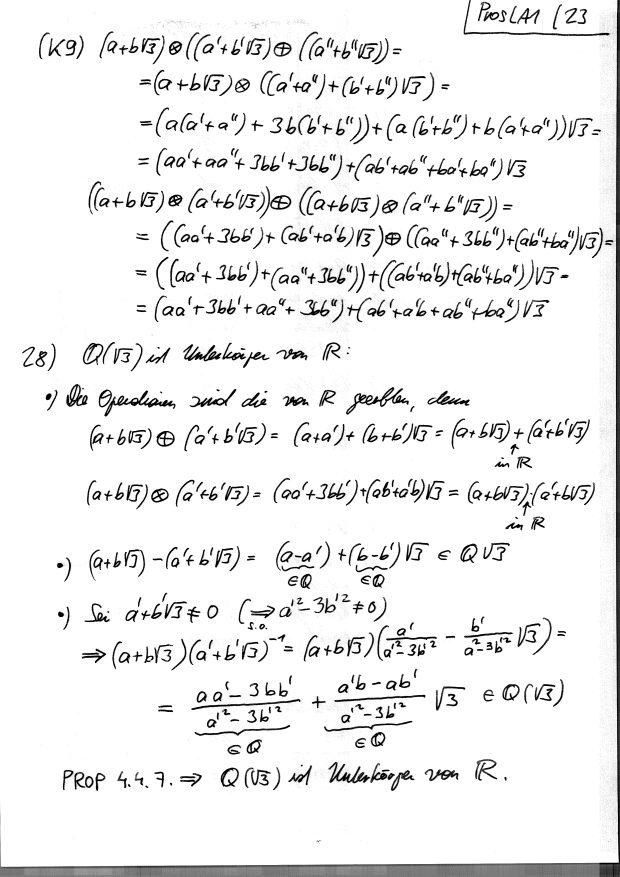 ProsLA1 / 23
(K9) (a+b√3)⊗((a'+b'√3)⊕((a''+b''√3))=
=(a+b√3)⊗((a'+a'')+(b'+b'')√3)=
=(a(a'+a'')+3b(b'+b''))+(a(b'+b'')+b(a'+a''))√3=
=(aa'+aa''+3bb'+3bb'')+(ab'+ab''+ba'+ba'')√3
((a+b√3)⊗(a'+b'√3))⊕((a+b√3)⊗(a''+b''√3))=
=((aa'+3bb')+(ab'+a'b)√3)⊕((aa''+3bb'')+(ab''+ba'')√3)=
=((aa'+3bb')+(aa''+3bb''))+((ab'+a'b)+(ab''+ba''))√3=
=(aa'+3bb'+aa''+3bb'')+(ab'+a'b+ab''+ba'')√3
28) ℚ(√3) ist Unterkörper von ℝ:
•) Die Operationen sind die von ℝ geerbten, denn
(a+b√3)⊕(a'+b'√3)=(a+a')+(b+b')√3=(a+b√3)+(a'+b'√3)
↑
in ℝ
(a+b√3)⊗(a'+b'√3)=(aa'+3bb')+(ab'+a'b)√3=(a+b√3)·(a'+b√3)
↑
in ℝ
•) (a+b√3)-(a'+b'√3)=(a-a')+(b-b')√3 ∈ ℚ√3
∈ℚ ∈ℚ
•) Sei a'+b'√3≠0 (⇒a'²-3b'²≠0)
s.o.
⇒(a+b√3)(a'+b'√3)⁻¹=(a+b√3)(a'/(a'²-3b'²) - b'/(a'²-3b'²)√3)=
= (aa'-3bb')/(a'²-3b'²) + (a'b-ab')/(a'²-3b'²) √3 ∈ ℚ(√3)
∈ℚ ∈ℚ
PROP 4.4.7. ⇒ ℚ(√3) ist Unterkörper von ℝ.